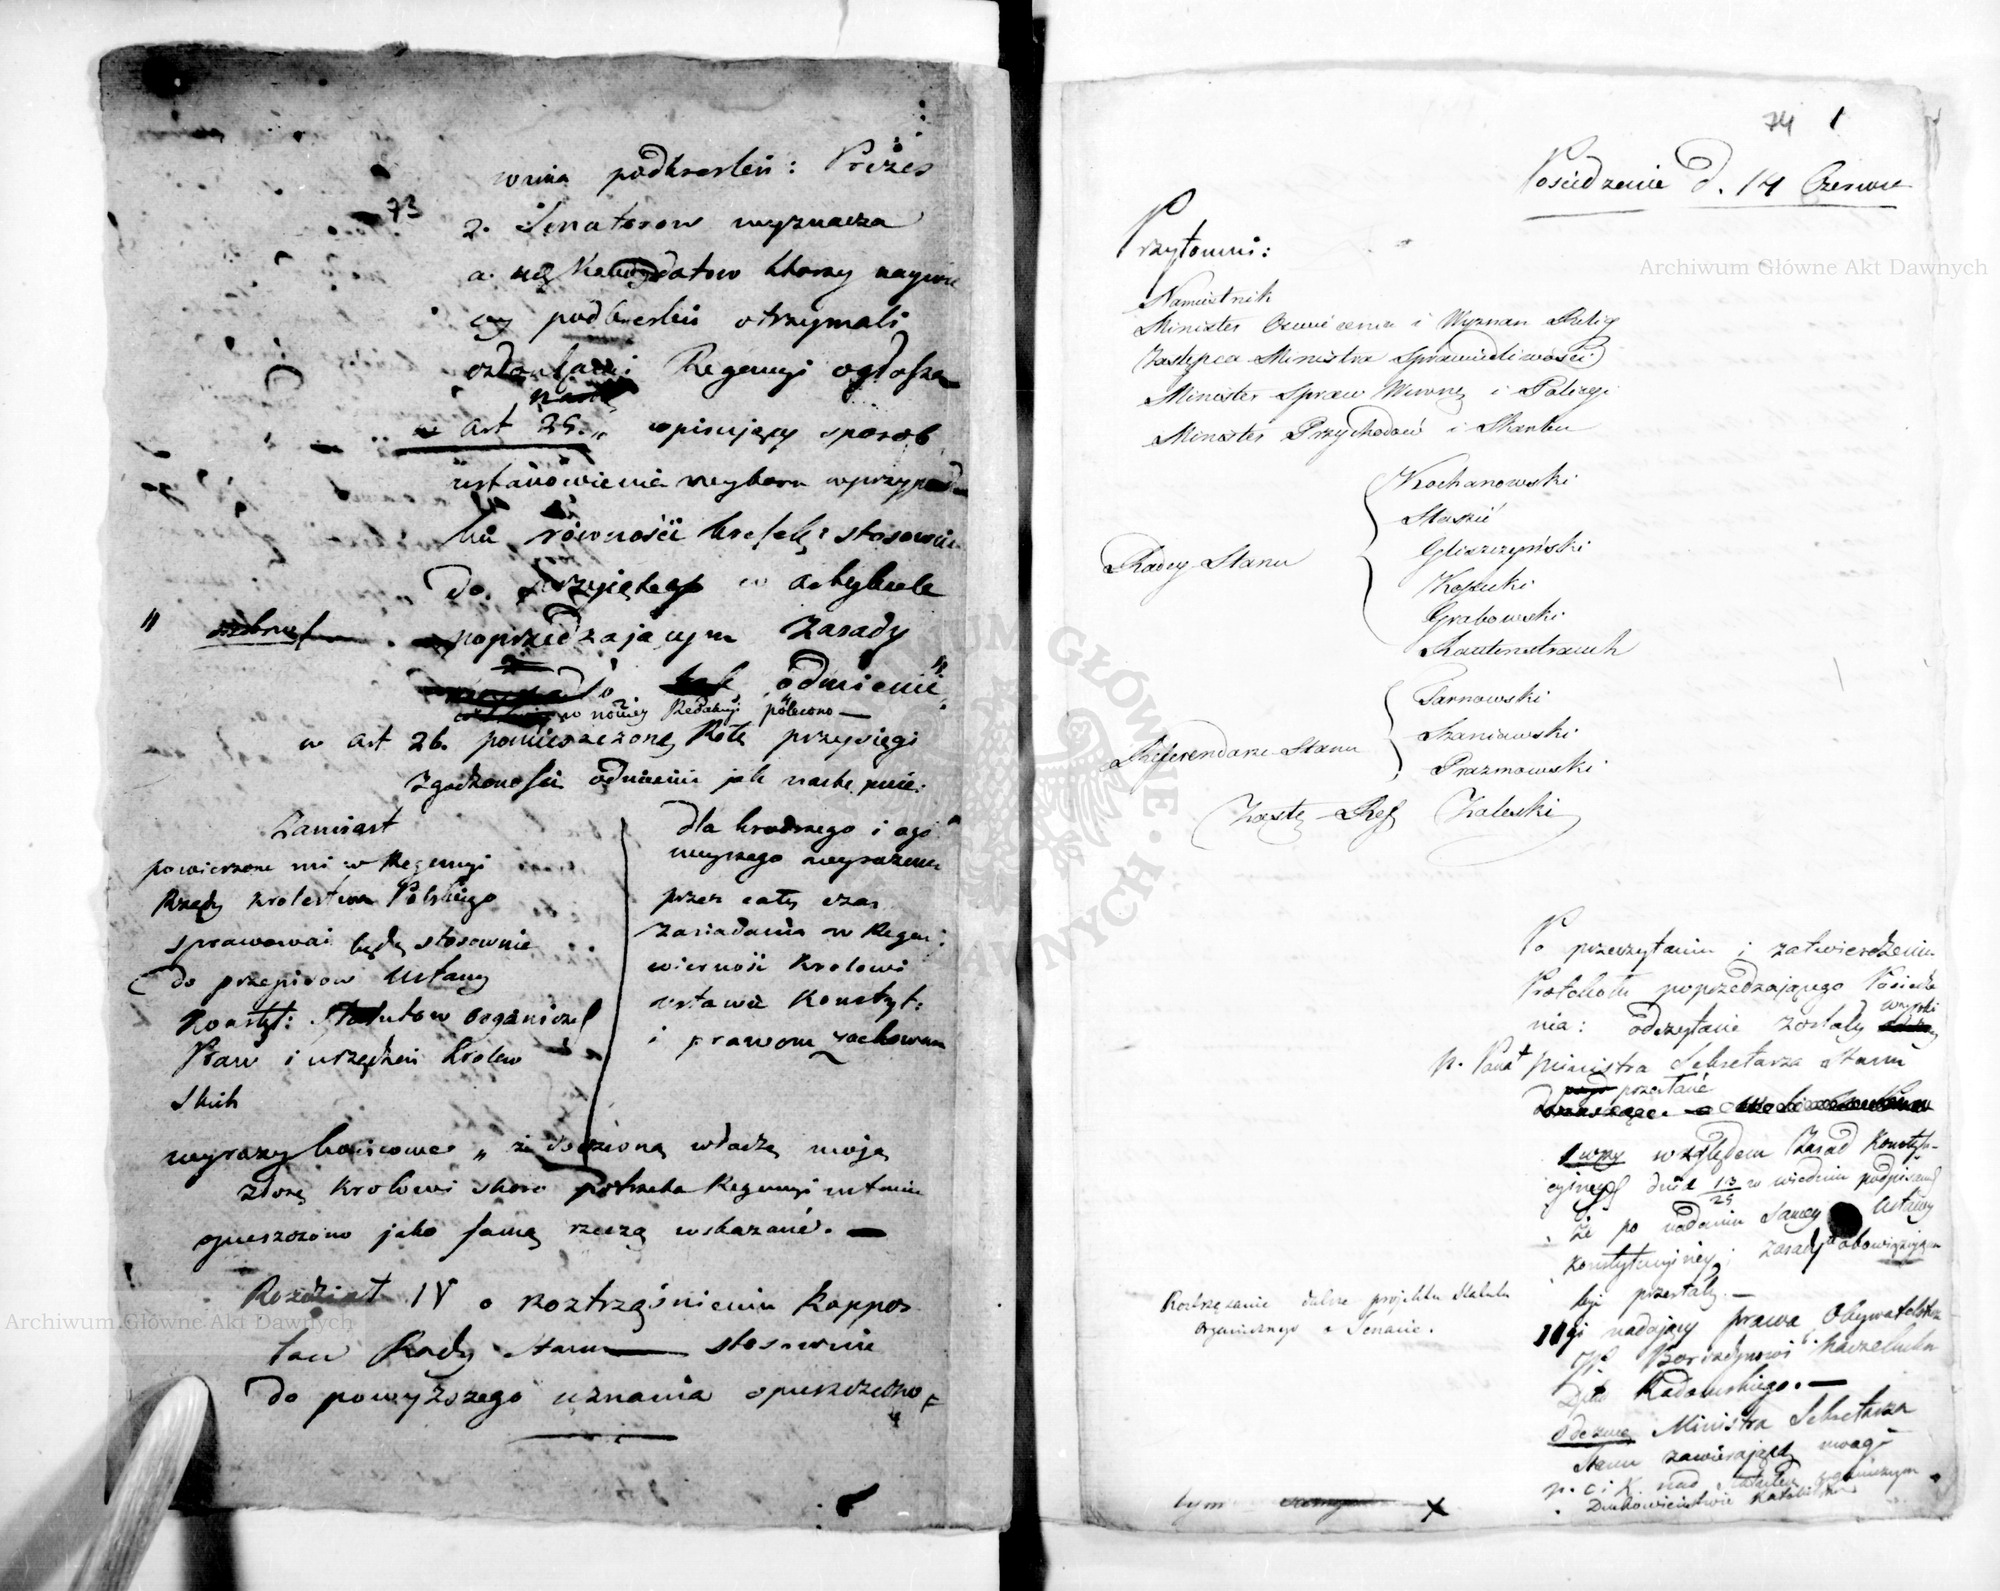 73
wnia podkreśleń: Prezes
2. Senatorow wyznacza
a. na Kandydatow ktorzy naywie
cey podkreśleń otrzymali
członkami Regencyi ogłasza
art 25. „ opisujący sposob
ustanowienia wyboru w przypad
ku rowności kresek, stosownie
do przyiętey w artykule
poprzedzaiącym Zasady
odmienić
w nowey Redakcyi polecono —
w art 26. pomieszczoną Rotę przysięgi
zgodzono się odmienić jak następnie:
Zamiast
powierzone mi w Regencyi
Rządy Krolestwa Polskiego
sprawować będę stosownie
do przepisow Ustawy
Konstyt: Statutow Organicz
Praw i urządzeń Krolew
skich
dla krodszego i ogo
lnieyszego wyrażenia
przez cały czas
zasiadania w Regen:
wierność Krolowi
ustawie Konstyt:
i prawom zachowam
wyrazy końcowe „ że daną władzę moją
złożę Krolowi skoro potrzeba Regencyi ustanie
opuszczono jako samą rzeczą wskazane. —
Rozdział IV o roztrząśnieniu Rappor
tow Rady Stanu — stosownie
do powyższego uznania opuszczono
74 1
Posiedzenie d. 14 Czerwca
Przytomni:
Namiestnik
Minister Oświecenia i Wyznan Relig
Zastępca Ministra Sprawiedliwości
Minister Spraw Wewnę i Policyi
Minister Przychodow i Skarbu
Radcy Stanu
Kochanowski
Staszic
Gliszczyński
Kozicki
Grabowski
Rautenstrauch
Referendarze Stanu
Tarnowski
Szaniawski
Prazmowski
Zastę. Ref Zaleski
Po przeczytaniu i zatwierdzeniu
Protokołu poprzedzającego Posiedze
nia: odczytane zostały wypiski
p. Pana Ministra Sekretarza Stanu
przesłane
1wszy względem Zasad Konstytu-
cyinych dnia 13/25 w Wiedniu podpisanych
że po nadaniu samey Ustawy
Konstytucyiney, zasady obowiązującemi
być przestały. —
2gi nadający prawa Obywatelstwa
Dptu Radomskiego. —
Odezwę Ministra Sekretarza
Stanu zawierającą uwagi
n. C i K. nad Statutem organicznym
o Duchowieństwie Katolickim
Roztrząsanie dalsze projektu Statutu
Organicznego o Senacie.
Archiwum Główne Akt Dawnych
Archiwum Główne Akt Dawnych